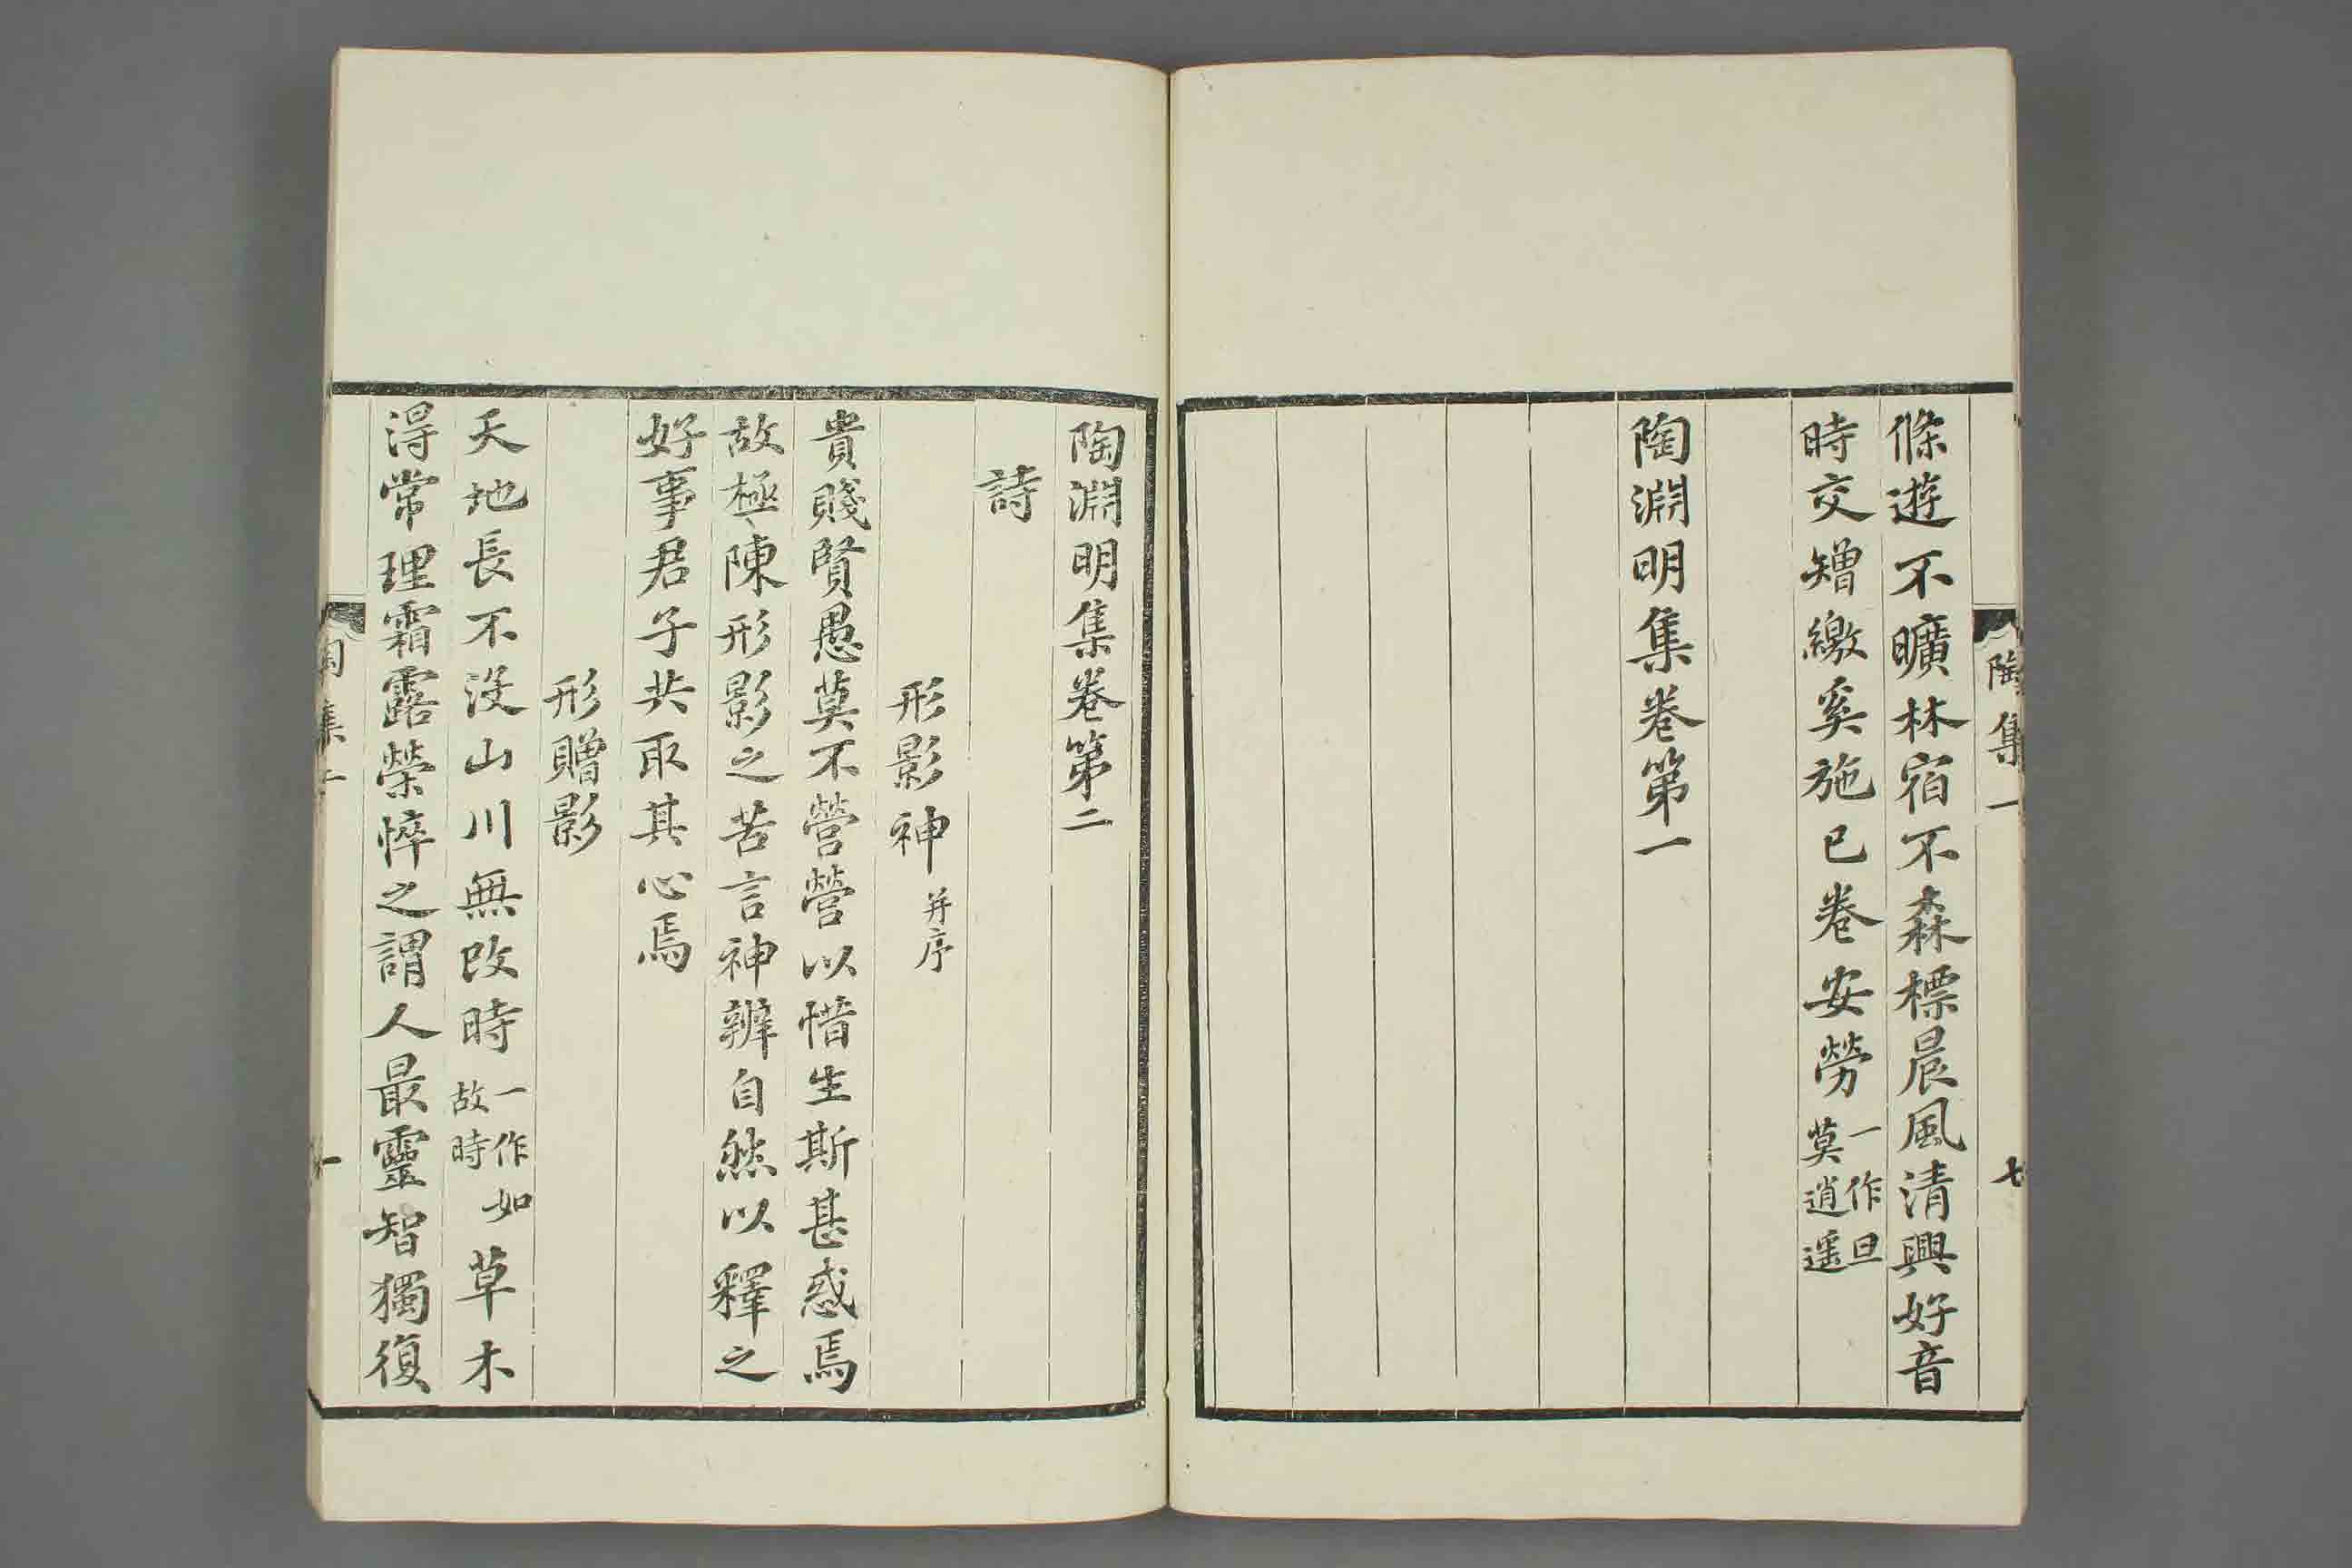 陶集一 七
條遊不曠林宿不森標晨風清興好音
時交矰繳奚施已卷安勞一作旦莫逍遥
陶淵明集卷第一
陶淵明集卷第二
詩
形影神并序
貴賤賢愚莫不營營以惜生斯甚惑焉
故極陳形影之苦言神辨自然以釋之
好事君子共取其心焉
形贈影
天地長不没山川無改時一作故時如草木
得常理霜露榮悴之謂人最靈智獨復
陶集二 一